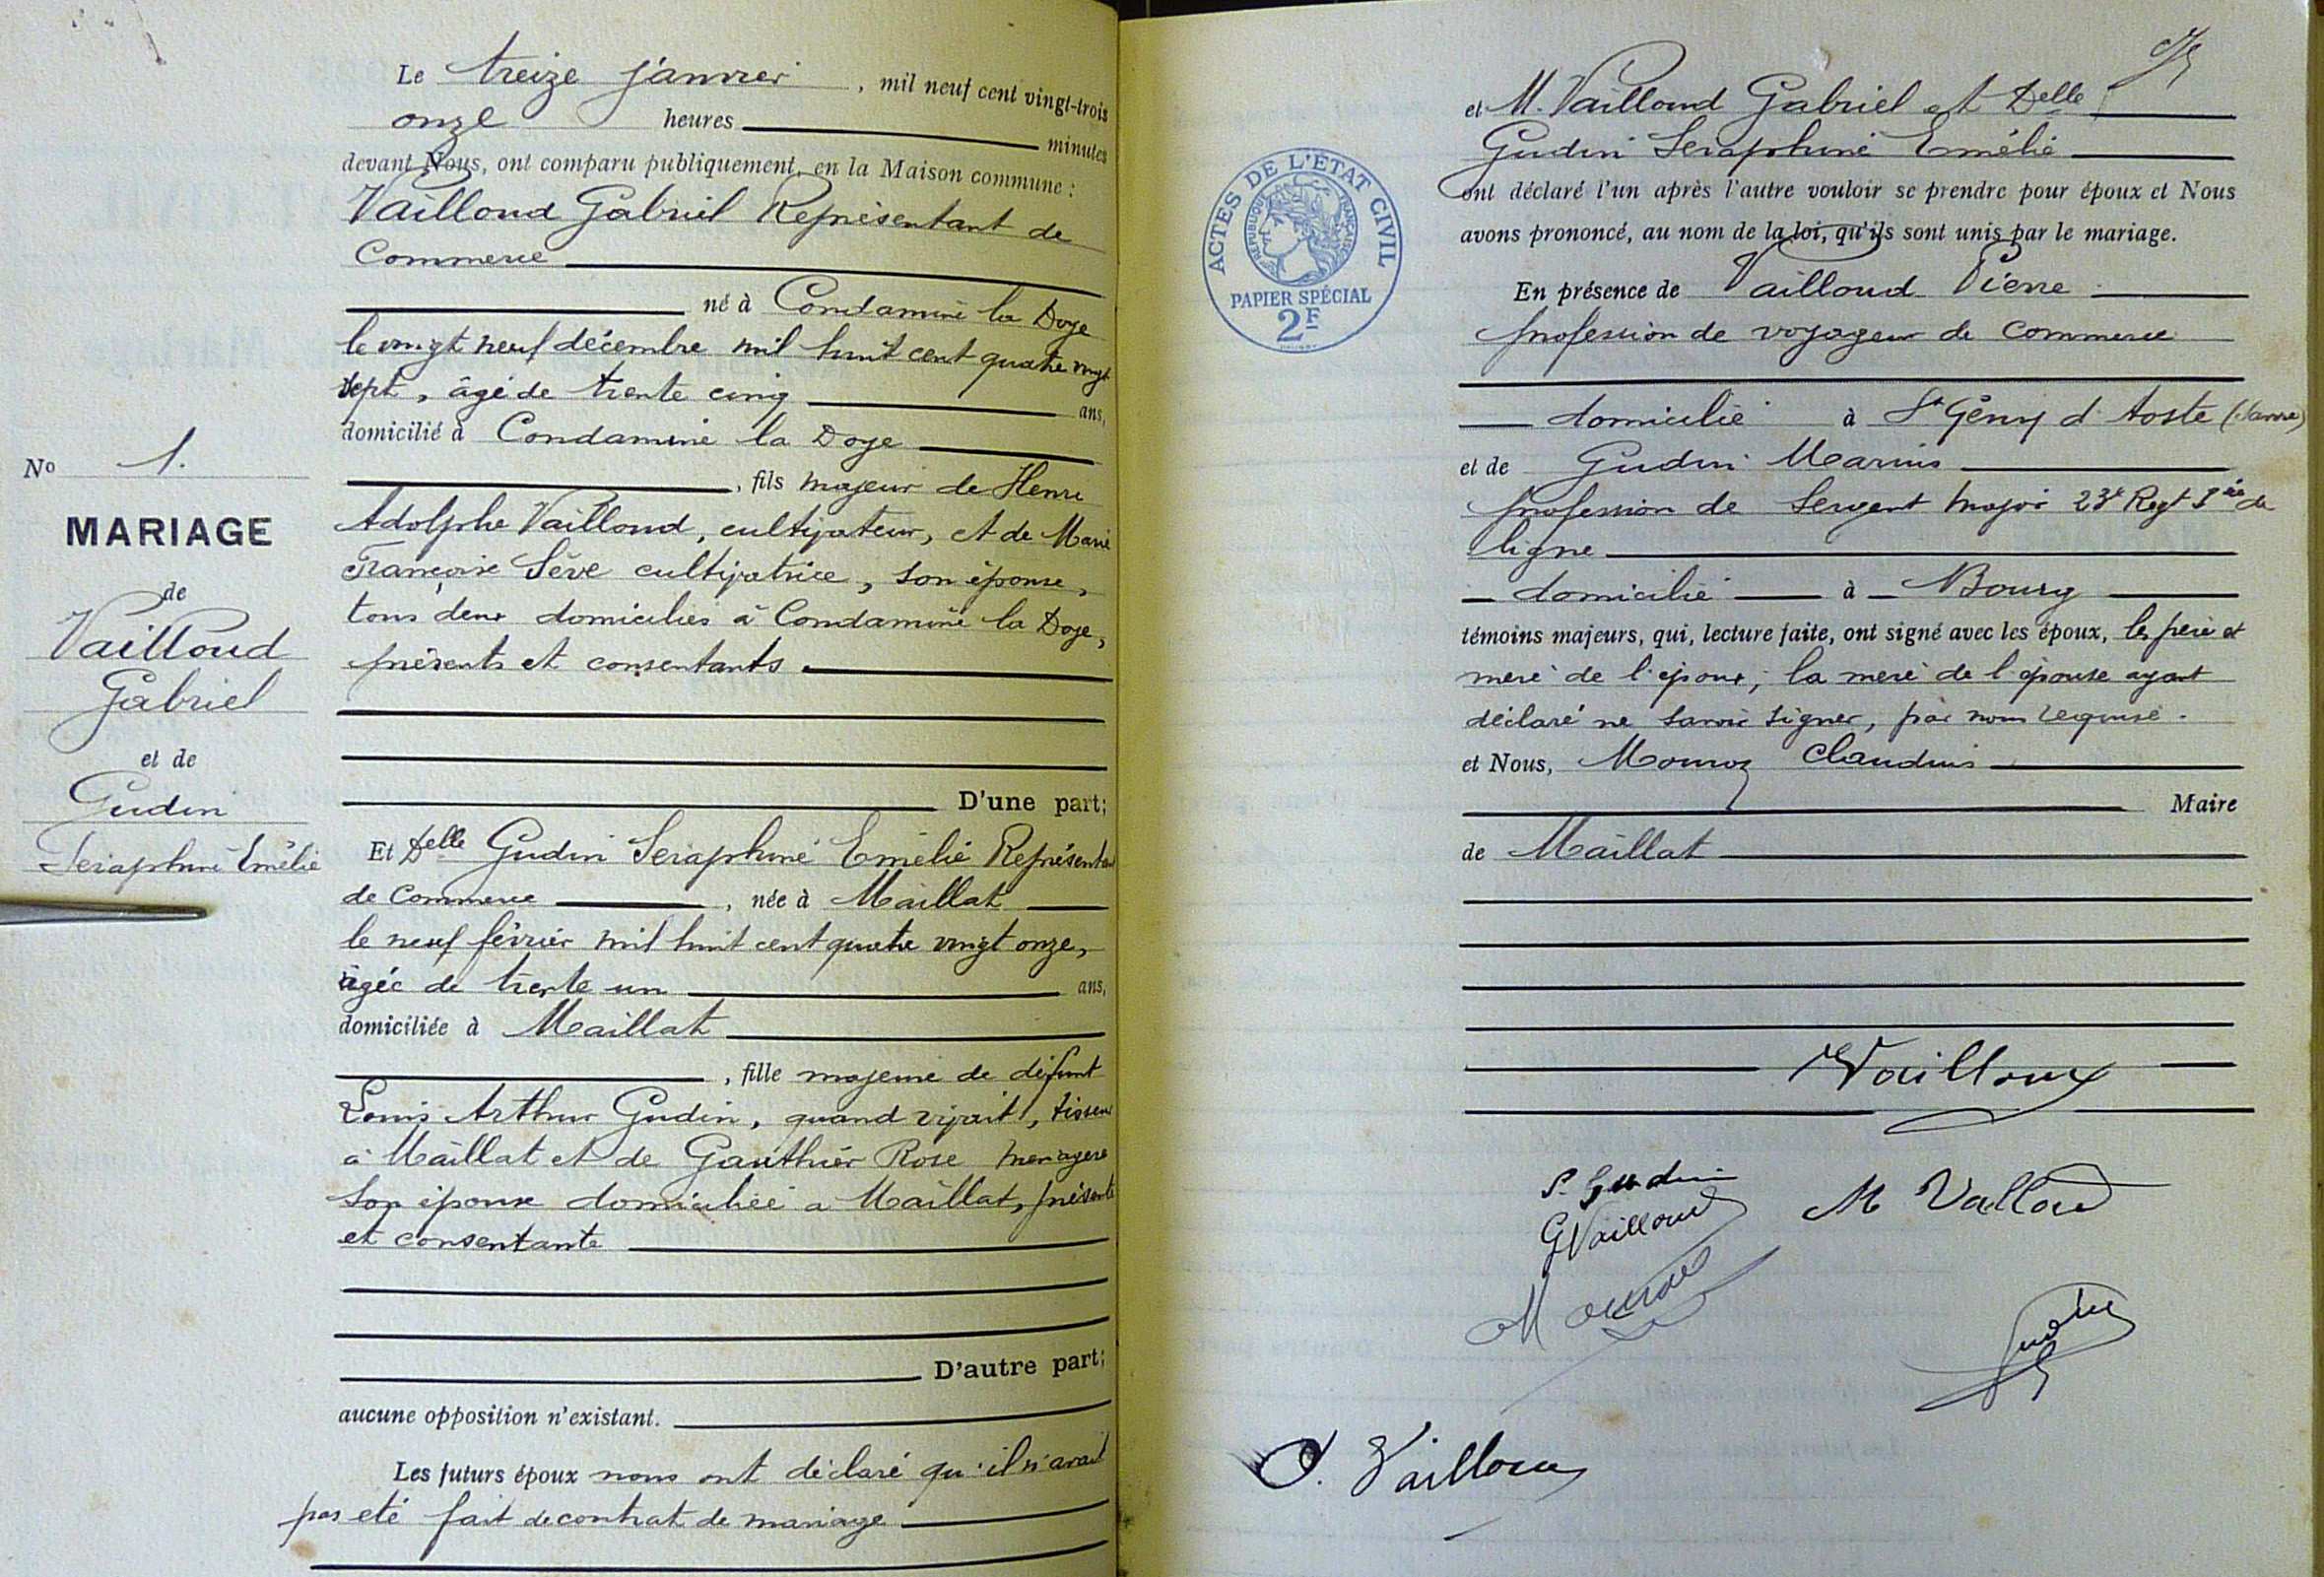 Le treize janvier, mil neuf cent vingt-trois
onze heures minutes
devant Nous, ont comparu publiquement, en la Maison commune :
Vailloud Gabriel Représentant de
Commerce
né à Condamine la Doye
le vingt neuf décembre mil huit cent quatre vingt
sept, âgé de trente cinq ans,
domicilié à Condamine la Doye
No 1.
, fils majeur de Henri
MARIAGE
Adolphe Vailloud, cultivateur, et de Marie
Françoise Sève cultivatrice, son épouse,
de
tous deux domiciliés à Condamine la Doye,
Vailloud
présents et consentants
Gabriel
et de
Gudin
D'une part;
Seraphine Emélie
Et Delle Gudin Seraphine Emélie Représentant
de Commerce, née à Maillat
le neuf février mil huit cent quatre vingt onze,
âgée de trente un ans,
domiciliée à Maillat
, fille majeure de défunt
Louis Arthur Gudin, quand vivait, tisseur
à Maillat et de Gauthier Rose menagere
son épouse domiciliée a Maillat, présente
et consentante
D'autre part;
aucune opposition n'existant.
Les futurs époux nous ont déclaré qu'il n'avait
pas eté fait de contrat de mariage
et M. Vailloud Gabriel et Delle
Gudin Seraphine Emélie
ont déclaré l'un après l'autre vouloir se prendre pour époux et Nous
avons prononcé, au nom de la loi, qu'ils sont unis par le mariage.
ACTES DE L'ÉTAT CIVIL
RÉPUBLIQUE FRANÇAISE
PAPIER SPÉCIAL
2F
En présence de Vailloud Pierre
profession de voyageur de commerce
domicilié à St Genix d'Aoste (Savoie)
et de Gudin Marius
profession de Sergent major 23e Regt Irie de
ligne
domicilié à Bourg
témoins majeurs, qui, lecture faite, ont signé avec les époux, les père et
mere de l'époux, la mere de l'épouse ayant
déclaré ne savoir signer, par nous requise.
et Nous, Mouroz Claudius
Maire
de Maillat
Vailloud
S. Gudin
G Vailloud
M Valloud
Mouroz
Gudin
P. Vailloud